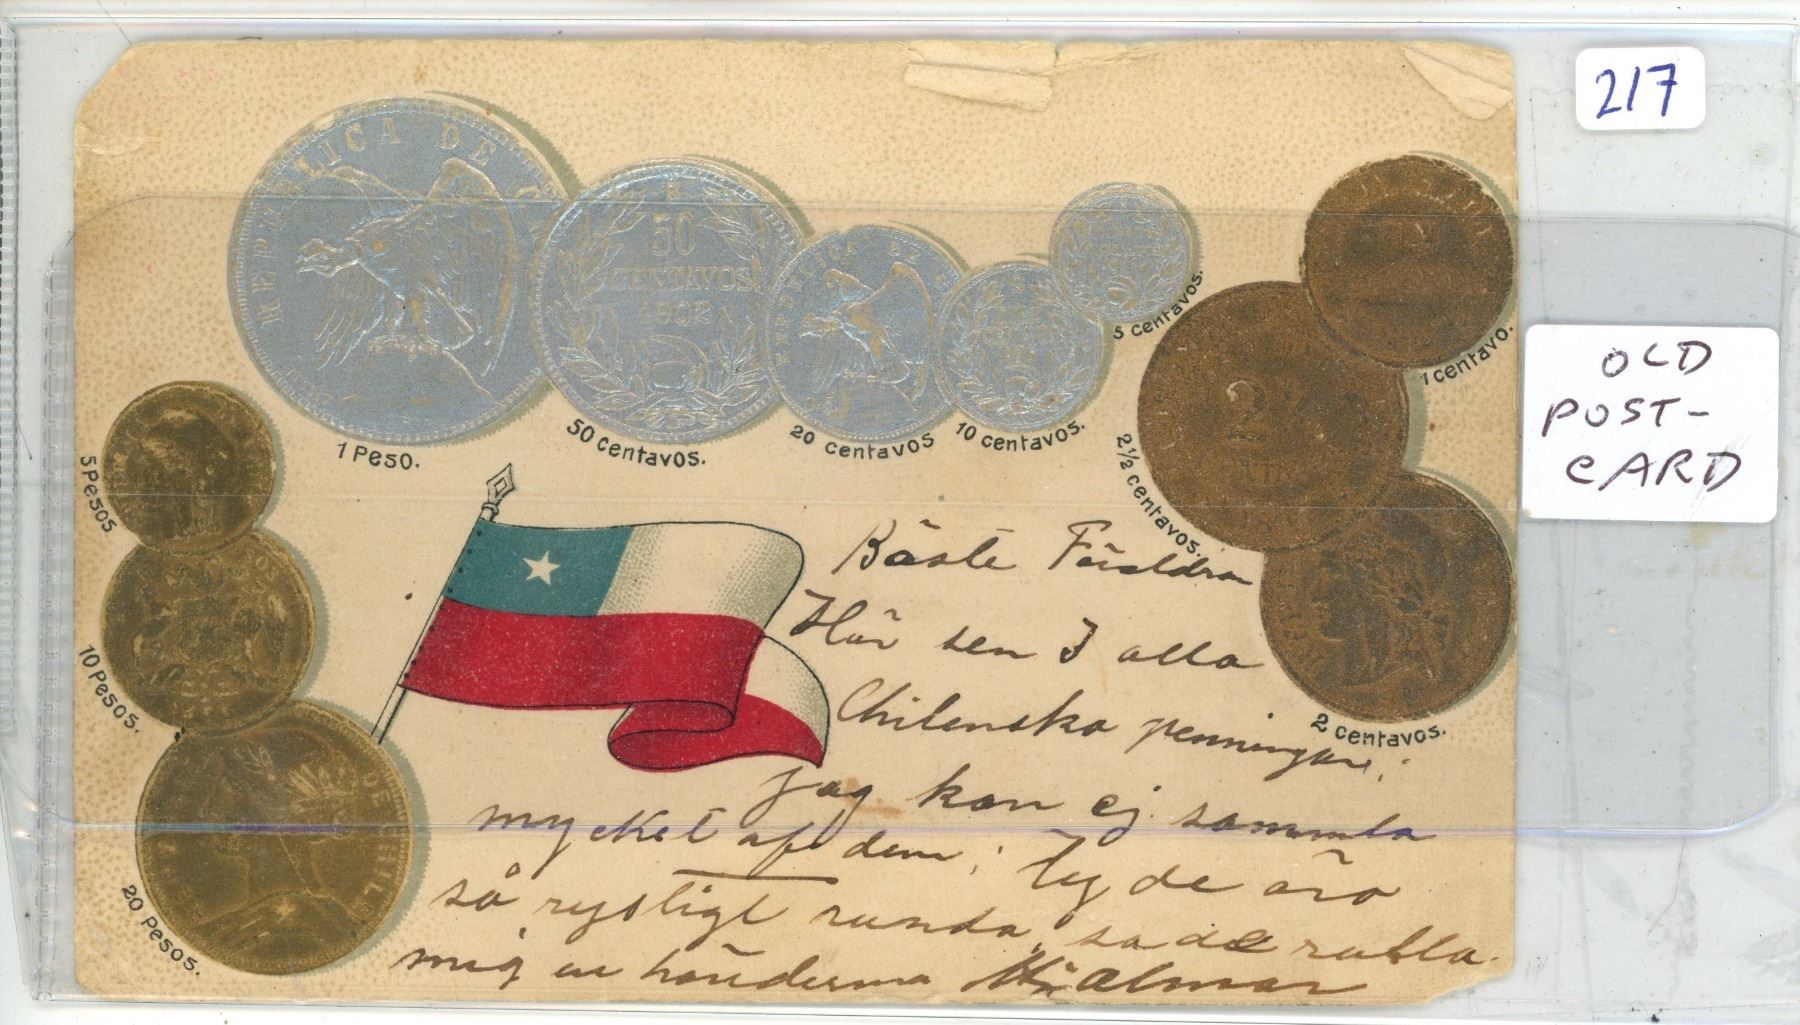 217
OLD
POST-
CARD
REPUBLICA DE
50
CENTAVOS
1902
1 Peso.
50 centavos.
20 centavos
10 centavos.
5 centavos.
1 centavo.
2½ centavos.
2 centavos.
5 Pesos
10 Pesos.
20 Pesos.
Bäste Föräldrar
Här sen I alla
Chilenska penningar;
jag kan ej samla
mycket af dem; Ty de äro
så rysligt runda, så de rulla
mig ur händerna Hjalmar